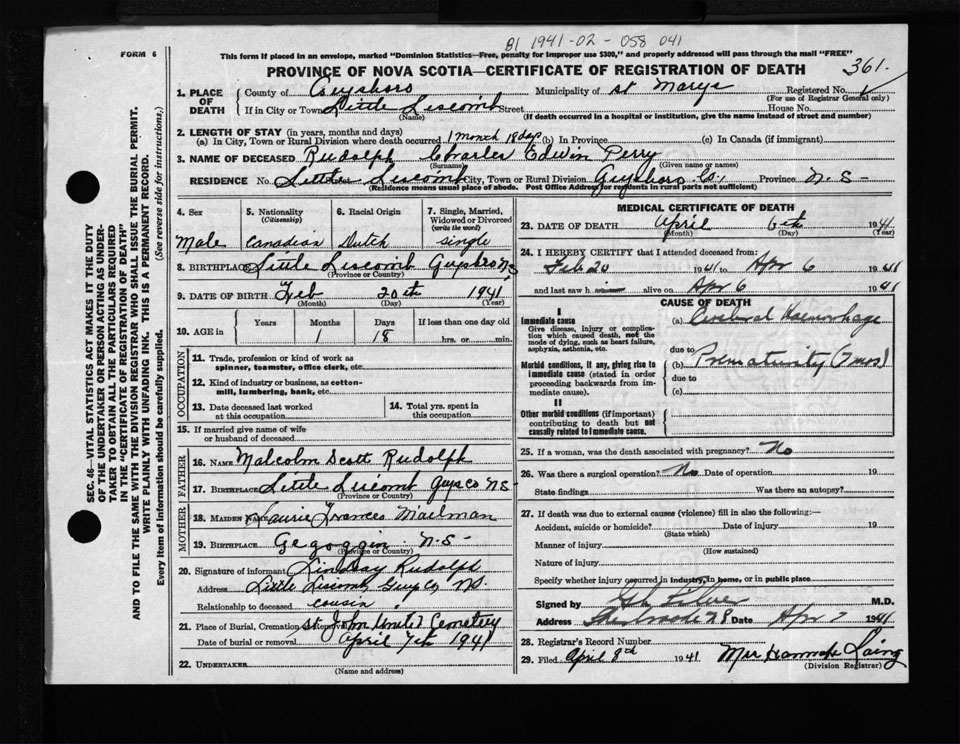 B1 1941-02-058 041
FORM 6
This form if placed in an envelope, marked "Dominion Statistics—Free, penalty for improper use $300," and properly addressed will pass through the mail "FREE"
PROVINCE OF NOVA SCOTIA—CERTIFICATE OF REGISTRATION OF DEATH 361
1. PLACE OF DEATH
County of Guysboro Municipality of St Marys Registered No.
(For use of Registrar General only)
If in City or Town Little Liscomb Street House No.
(Name) (If death occurred in a hospital or institution, give the name instead of street and number)
2. LENGTH OF STAY (in years, months and days)
(a) In City, Town or Rural Division where death occurred 1 month 18 days (b) In Province (c) In Canada (if immigrant)
3. NAME OF DECEASED Rudolph Charles Edwin Perry
(Surname) (Given name or names)
RESIDENCE No. Little Liscomb City, Town or Rural Division Guysboro Co., Province N.S-
(Residence means usual place of abode. Post Office Address for residents in rural parts not sufficient)
4. Sex
Male
5. Nationality
(Citizenship)
Canadian
6. Racial Origin
Dutch
7. Single, Married, Widowed or Divorced
(write the word)
single
8. BIRTHPLACE Little Liscomb Guysboro N.S
(Province or Country)
9. DATE OF BIRTH Feb 20th 1941
(Month) (Day) (Year)
10. AGE in
Years Months Days If less than one day old
1 18 hrs. or min.
OCCUPATION
11. Trade, profession or kind of work as
spinner, teamster, office clerk, etc.
12. Kind of industry or business, as cotton-
mill, lumbering, bank, etc.
13. Date deceased last worked
at this occupation
14. Total yrs. spent in
this occupation
15. If married give name of wife
or husband of deceased
FATHER
16. NAME Malcolm Scott Rudolph
17. BIRTHPLACE Little Liscomb Guys Co N.S-
(Province or Country)
MOTHER
18. MAIDEN NAME Laurie Frances Mailman
19. BIRTHPLACE Gegoggin N.S-
(Province or Country)
20. Signature of informant Lindsay Rudolph
Address Little Liscomb, Guys Co, N.S.
Relationship to deceased cousin
21. Place of Burial, Cremation or Removal St John United Cemetery
Date of burial or removal April 7th 1941
22. UNDERTAKER
(Name and address)
MEDICAL CERTIFICATE OF DEATH
23. DATE OF DEATH April 6th 1941
(Month) (Day) (Year)
24. I HEREBY CERTIFY that I attended deceased from:
Feb 20 1941 to Apr 6 1941
and last saw h alive on Apr 6 1941
CAUSE OF DEATH
I
Immediate cause
Give disease, injury or complica-
tion which caused death, not the
mode of dying, such as heart failure,
asphyxia, asthenia, etc.
(a) Cerebral Haemorrhage
due to
Morbid conditions, if any, giving rise to
immediate cause (stated in order
proceeding backwards from im-
mediate cause).
(b) Prematurity (7 mos)
due to
(c)
II
Other morbid conditions (if important)
contributing to death but not
causally related to immediate cause.
25. If a woman, was the death associated with pregnancy? No
26. Was there a surgical operation? No Date of operation 19
State findings Was there an autopsy?
27. If death was due to external causes (violence) fill in also the following:—
Accident, suicide or homicide? Date of injury 19
(State which)
Manner of injury
(How sustained)
Nature of injury
Specify whether injury occurred in industry, in home, or in public place
Signed by M.D.
Address Date Apr 7 1941
28. Registrar's Record Number
29. Filed April 8th 1941 Mrs Hannah Laing
(Division Registrar)
SEC. 46—VITAL STATISTICS ACT MAKES IT THE DUTY
OF THE UNDERTAKER OR PERSON ACTING AS UNDER-
TAKER TO OBTAIN ALL THE PARTICULARS REQUIRED
IN THE "CERTIFICATE OF REGISTRATION OF DEATH"
AND TO FILE THE SAME WITH THE DIVISION REGISTRAR WHO SHALL ISSUE THE BURIAL PERMIT.
WRITE PLAINLY WITH UNFADING INK. THIS IS A PERMANENT RECORD.
Every item of information should be carefully supplied. (See reverse side for instructions.)